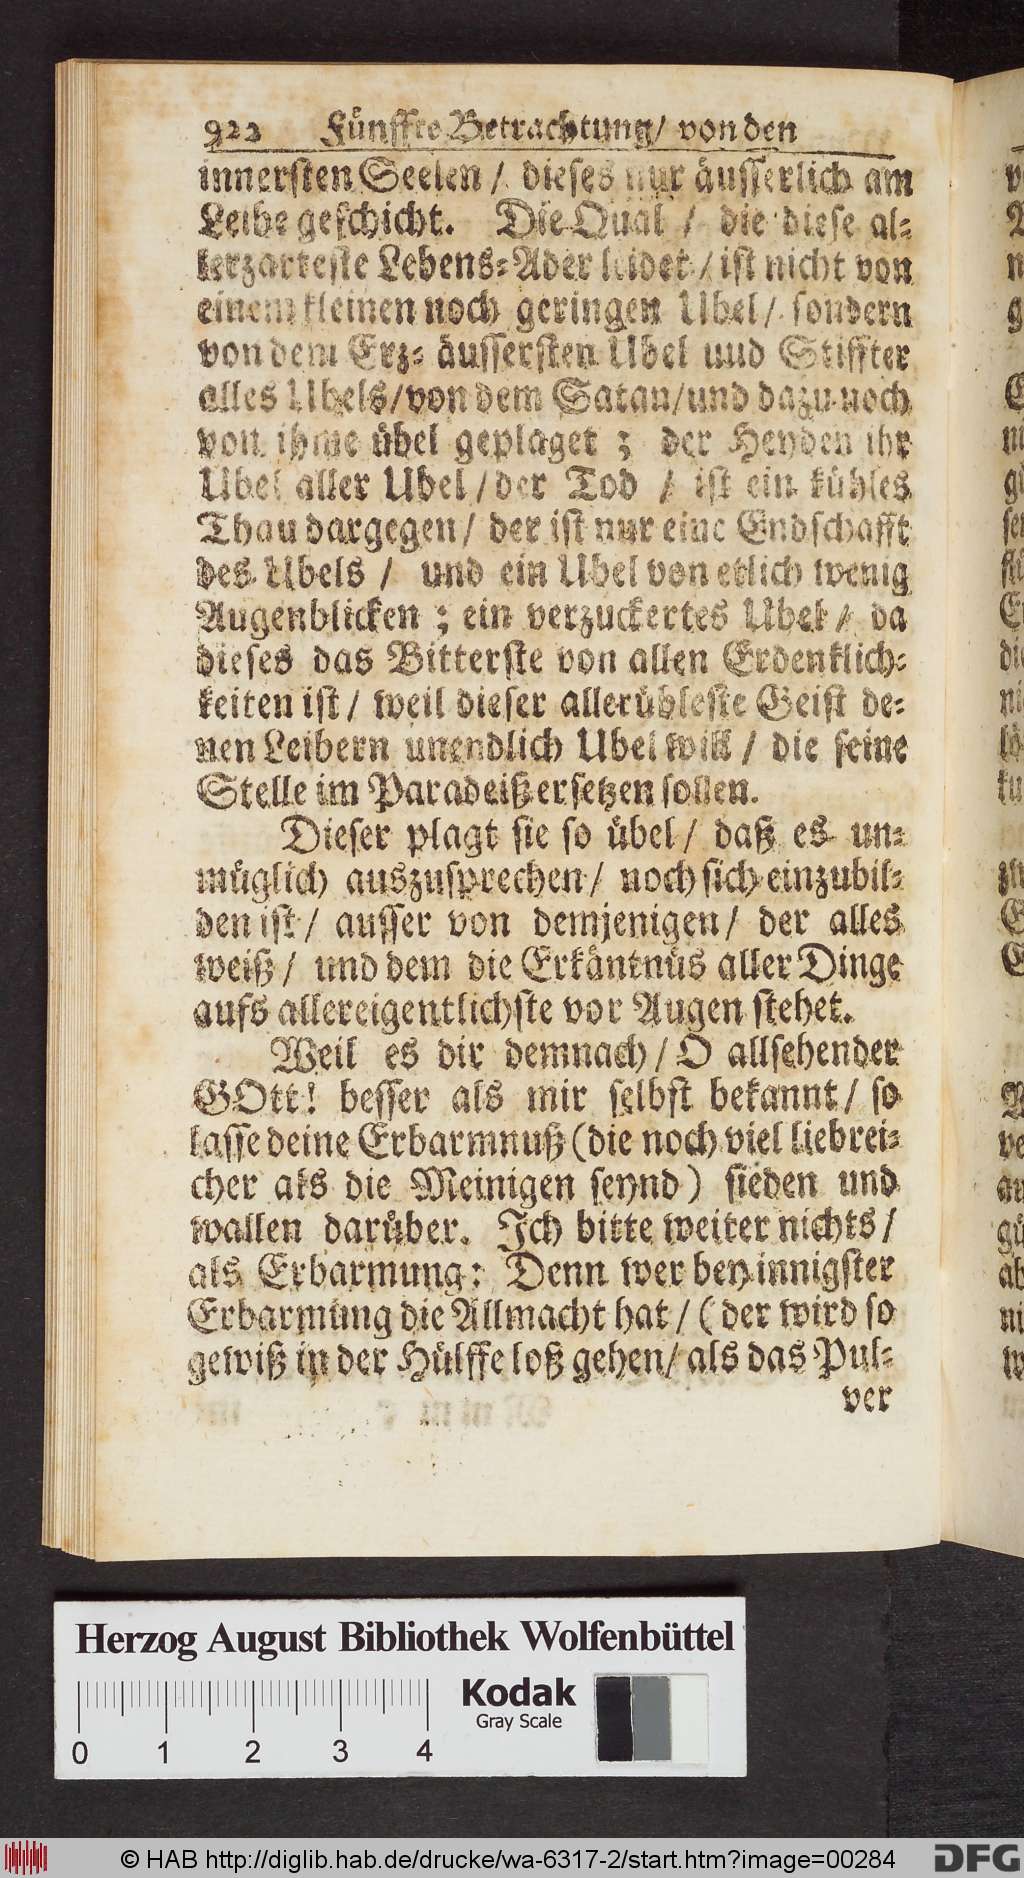 922 Fünffte Betrachtung/ von den
innersten Seelen/ dieses nur äusserlich am
Leibe geschicht. Die Qual/ die diese al-
lerzarteste Lebens-Ader leidet/ ist nicht von
einem kleinen noch geringen Ubel/ sondern
von dem Ertz-äussersten Ubel und Stiffter
alles Ubels/ von dem Satan/ und dazu noch
von ihme übel geplaget; der Heyden ihr
Ubel aller Ubel/ der Tod/ ist ein kühles
Thau dargegen/ der ist nur eine Endschafft
des Ubels/ und ein Ubel von etlich wenig
Augenblicken; ein verzuckertes Ubel/ da
dieses das Bitterste von allen Erdenklich-
keiten ist/ weil dieser allerübleste Geist de-
nen Leibern unendlich Ubel will/ die seine
Stelle im Paradeiß ersetzen sollen.
Dieser plagt sie so übel/ daß es un-
müglich auszusprechen/ noch sich einzubil-
den ist/ ausser von demjenigen/ der alles
weiß/ und dem die Erkäntnüs aller Dinge
aufs allereigentlichste vor Augen stehet.
Weil es dir demnach/ O allsehender
GOtt! besser als mir selbst bekannt/ so
lasse deine Erbarmnuß (die noch viel liebrei-
cher als die Meinigen seynd) sieden und
wallen darüber. Ich bitte weiter nichts/
als Erbarmung: Denn wer bey innigster
Erbarmung die Allmacht hat/ (der wird so
gewiß in der Hülffe loß gehen/ als das Pul-
ver
Herzog August Bibliothek Wolfenbüttel
Kodak
Gray Scale
0 1 2 3 4
© HAB http://diglib.hab.de/drucke/wa-6317-2/start.htm?image=00284
DFG